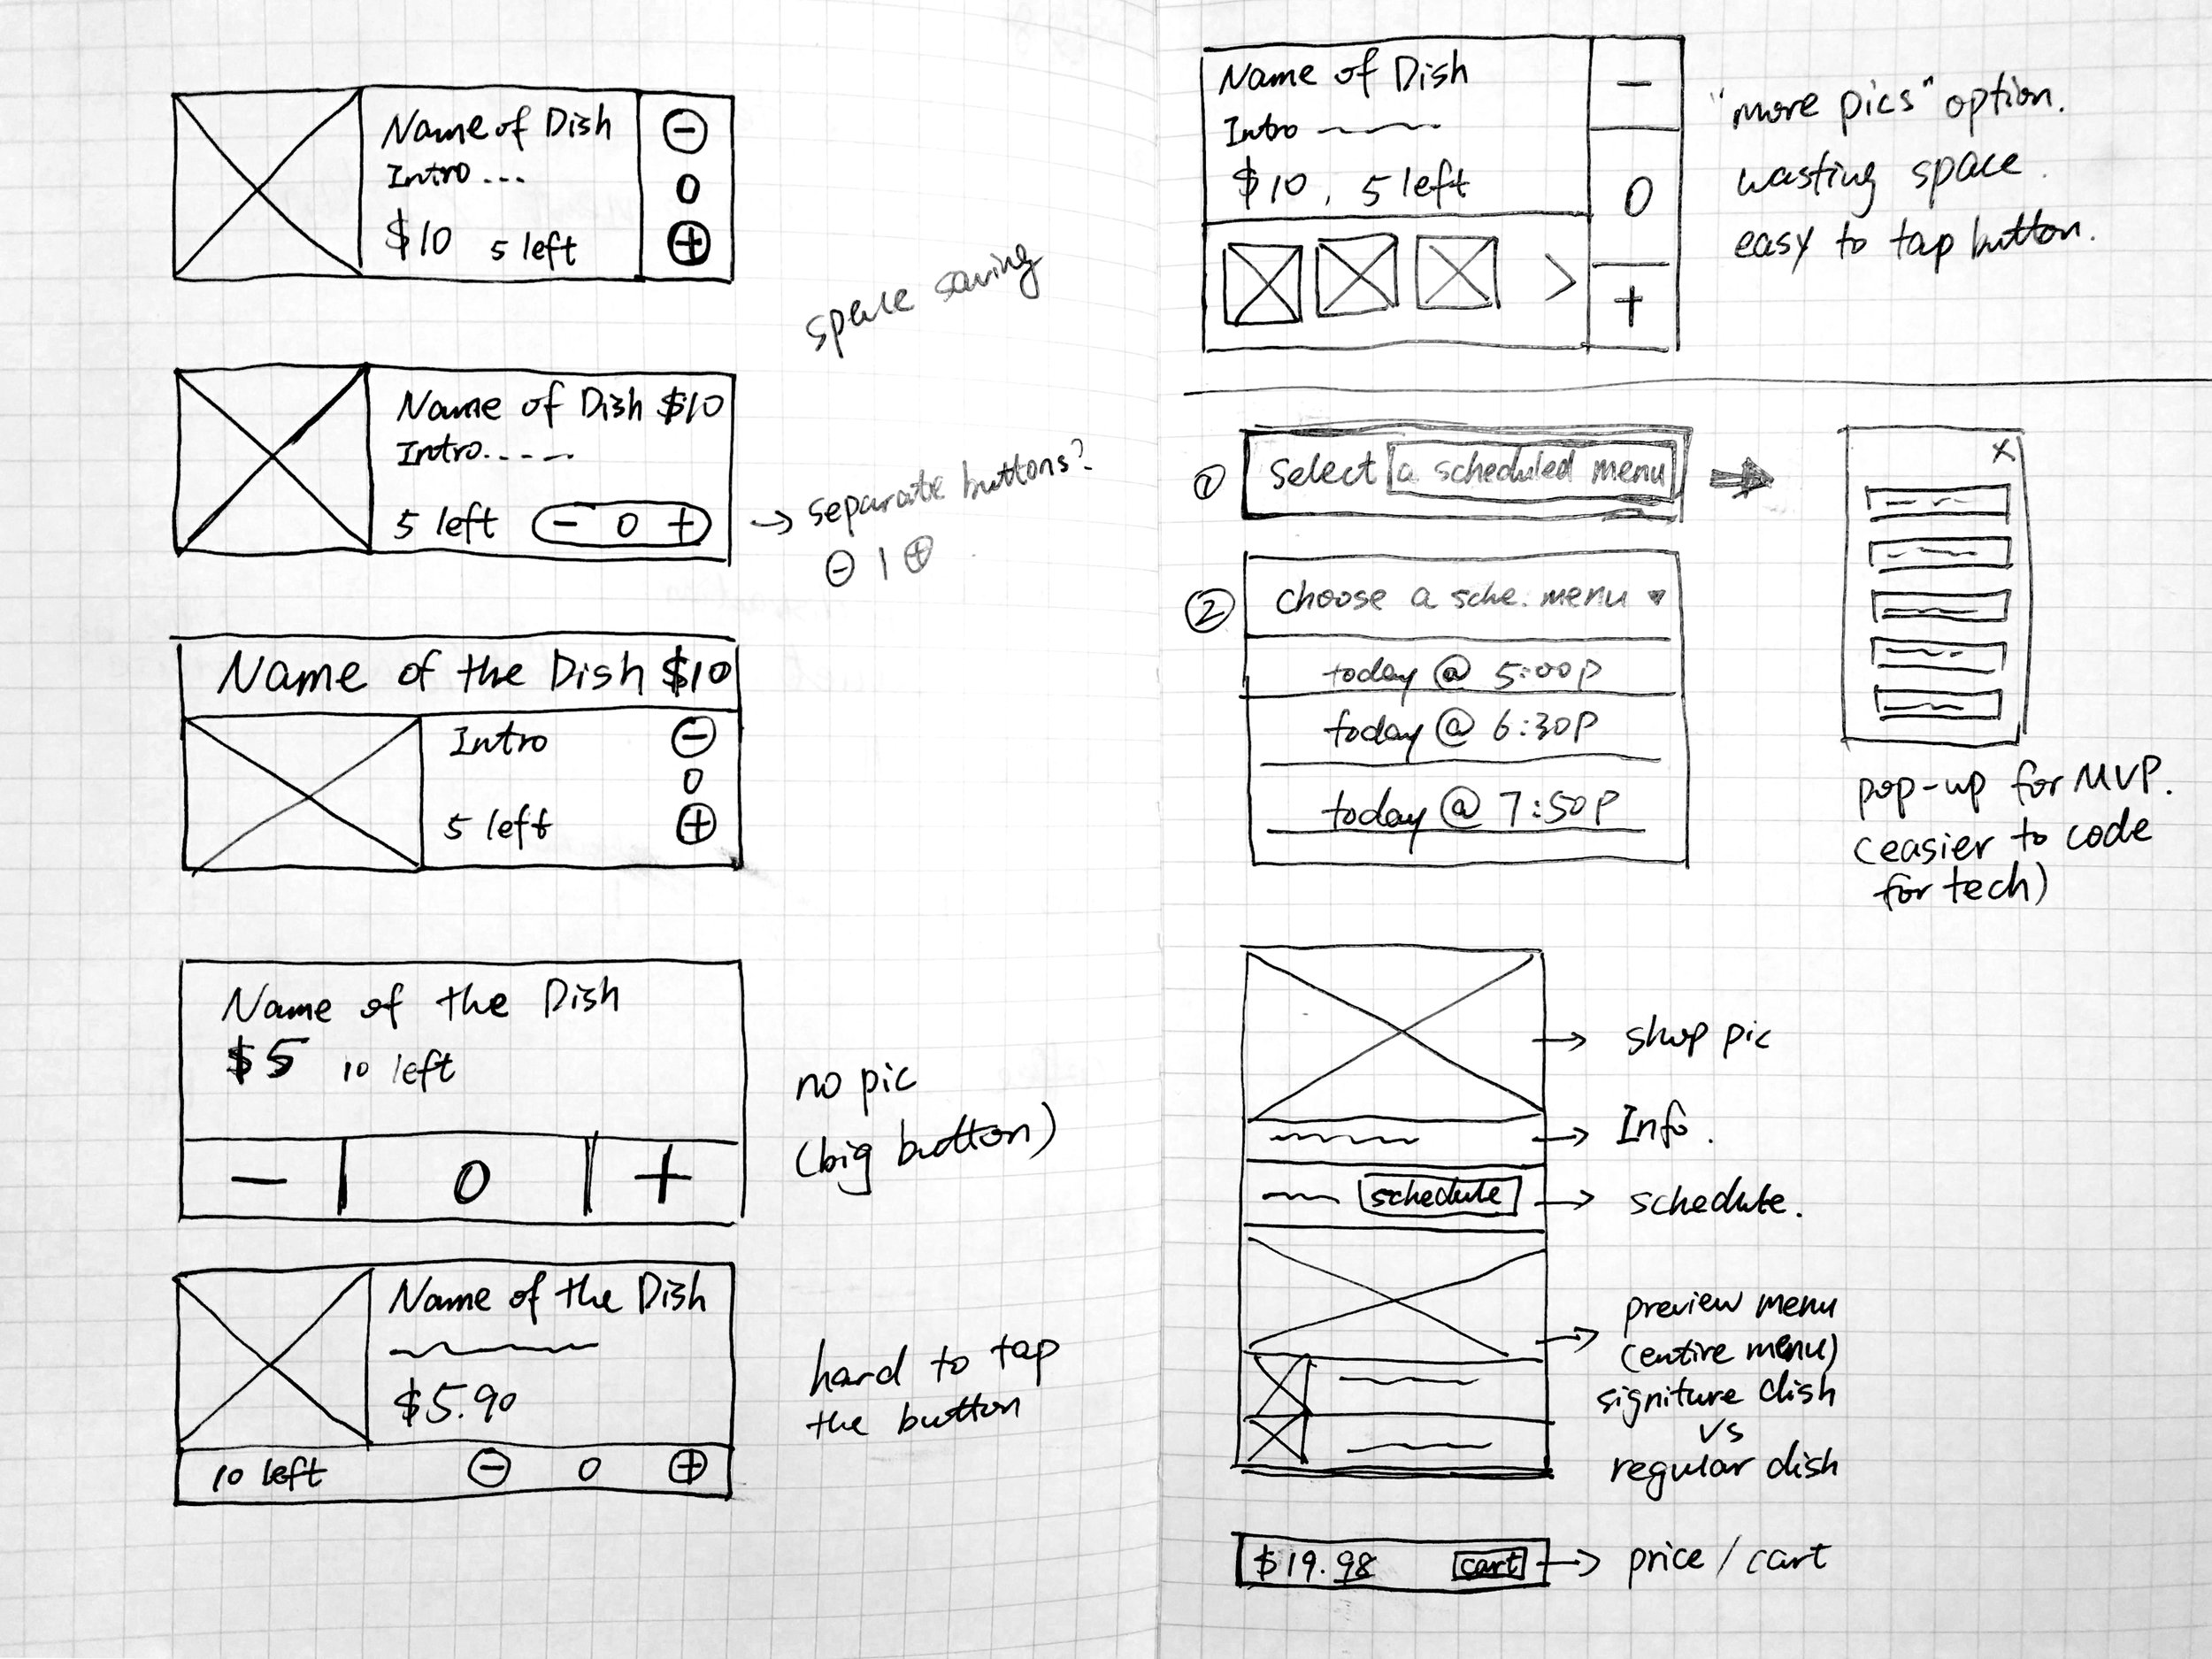 Name of Dish
Intro ...
$10 5 left
−
0
+
space saving
Name of Dish $10
Intro.....
5 left − 0 +
→ separate buttons?
− 1 +
Name of the Dish $10
Intro
5 left
−
0
+
Name of the Dish
$5 10 left
− 0 +
no pic
(big button)
Name of the Dish
$5.90
10 left − 0 +
hard to tap
the button
Name of Dish
Intro
$10, 5 left
>
−
0
+
"more pics" option.
wasting space.
easy to tap button.
① Select a scheduled menu
X
② choose a sche. menu ▾
today @ 5:00P
today @ 6:30P
today @ 7:50P
pop-up for MVP.
(easier to code
for tech)
→ shop pic
→ Info.
schedule → schedule.
→ preview menu
(entire menu)
signiture dish
vs
regular dish
$19.98 cart → price / cart